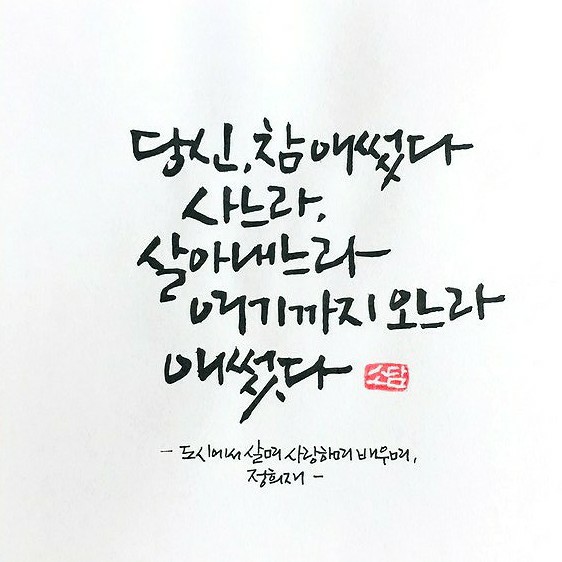 당신, 참 애썼다
사느라,
살아내느라
여기까지 오느라
애썼다 소담
- 도시에서 살며 사랑하며 배우며,
정희재 -